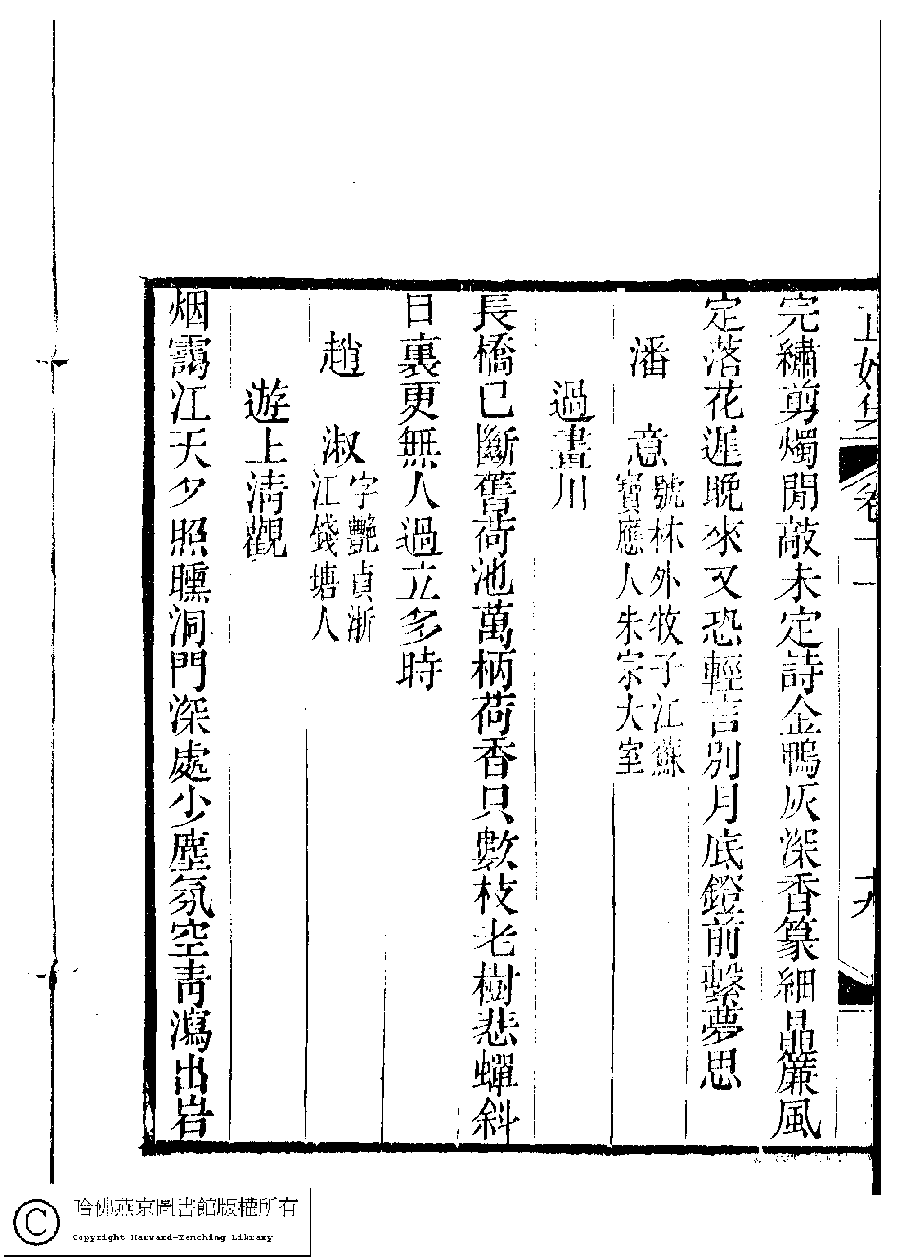 完繡剪燭閒敲未定詩金鴨灰深香篆細晶簾風
定落花遲晚來又恐輕言別月底鐙前繫夢思
潘意
號林外牧子江蘇
寶應人朱宗大室
過畫川
長橋已斷舊荷池萬柄荷香只數枝老樹悲蟬斜
日裏更無人過立多時
趙淑
字艷貞浙
江錢塘人
遊上清觀
烟靄江天夕照曛洞門深處少塵氛空青瀉出岩
哈佛燕京圖書館版權所有
Copyright Harvard-Yenching Library